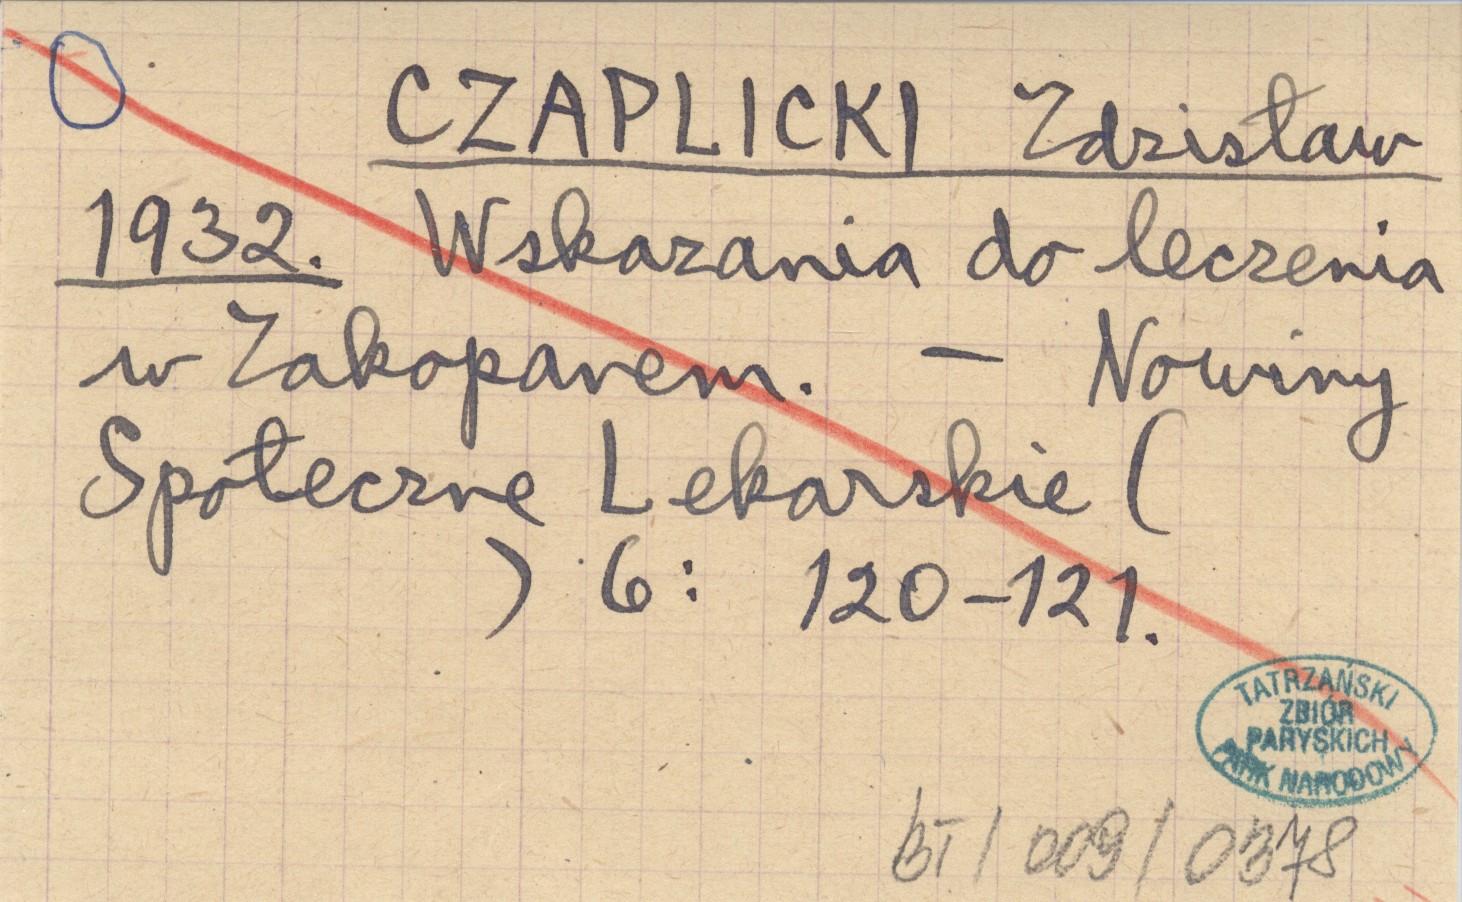 CZAPLICKI Zdzisław
1932. Wskazania do leczenia
w Zakopanem. – Nowiny
Społeczne Lekarskie (
) 6: 120–121.
TATRZAŃSKI
ZBIÓR
PARYSKICH
PARK NARODOWY
BT / 009 / 0378